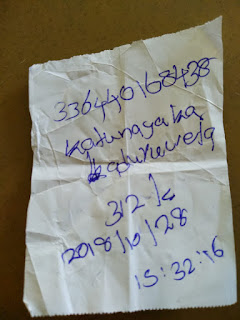 336440168438
Katunayaka
312 K
2018/10/28
15:32:16